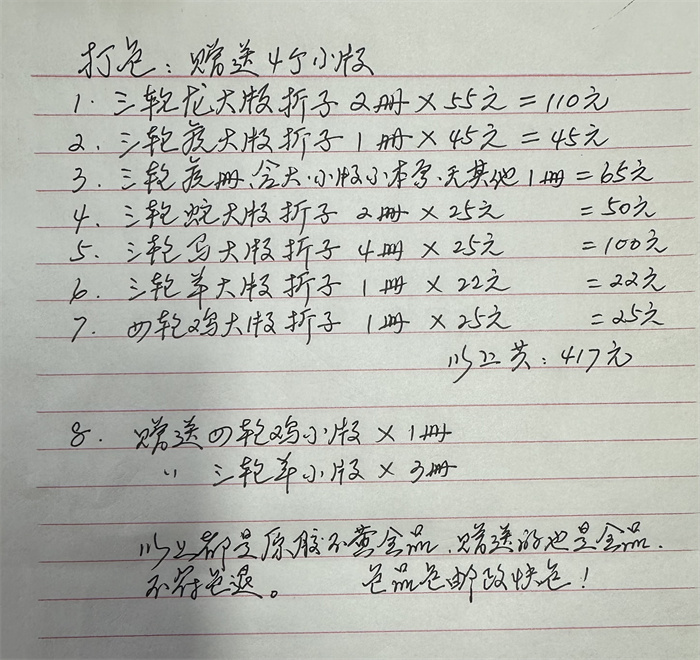 打包：赠送4个小版
1. 三轮龙大版折子 2册 × 55元 = 110元
2. 三轮虎大版折子 1册 × 45元 = 45元
3. 三轮虎册，含大、小版小本字，无其他 1册 = 65元
4. 三轮蛇大版折子 2册 × 25元 = 50元
5. 三轮马大版折子 4册 × 25元 = 100元
6. 三轮羊大版折子 1册 × 22元 = 22元
7. 四轮鸡大版折子 1册 × 25元 = 25元
以上共：417元
8. 赠送四轮鸡小版 × 1册
〃 三轮羊小版 × 3册
以上都是原胶不黄全品，赠送的也是全品，
不符包退。 包品包邮政快包！